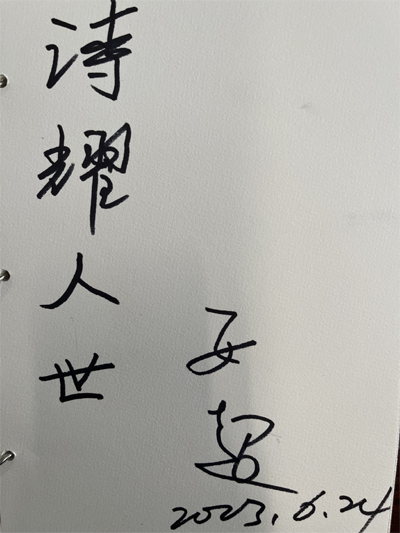 诗耀人世
2023.6.24